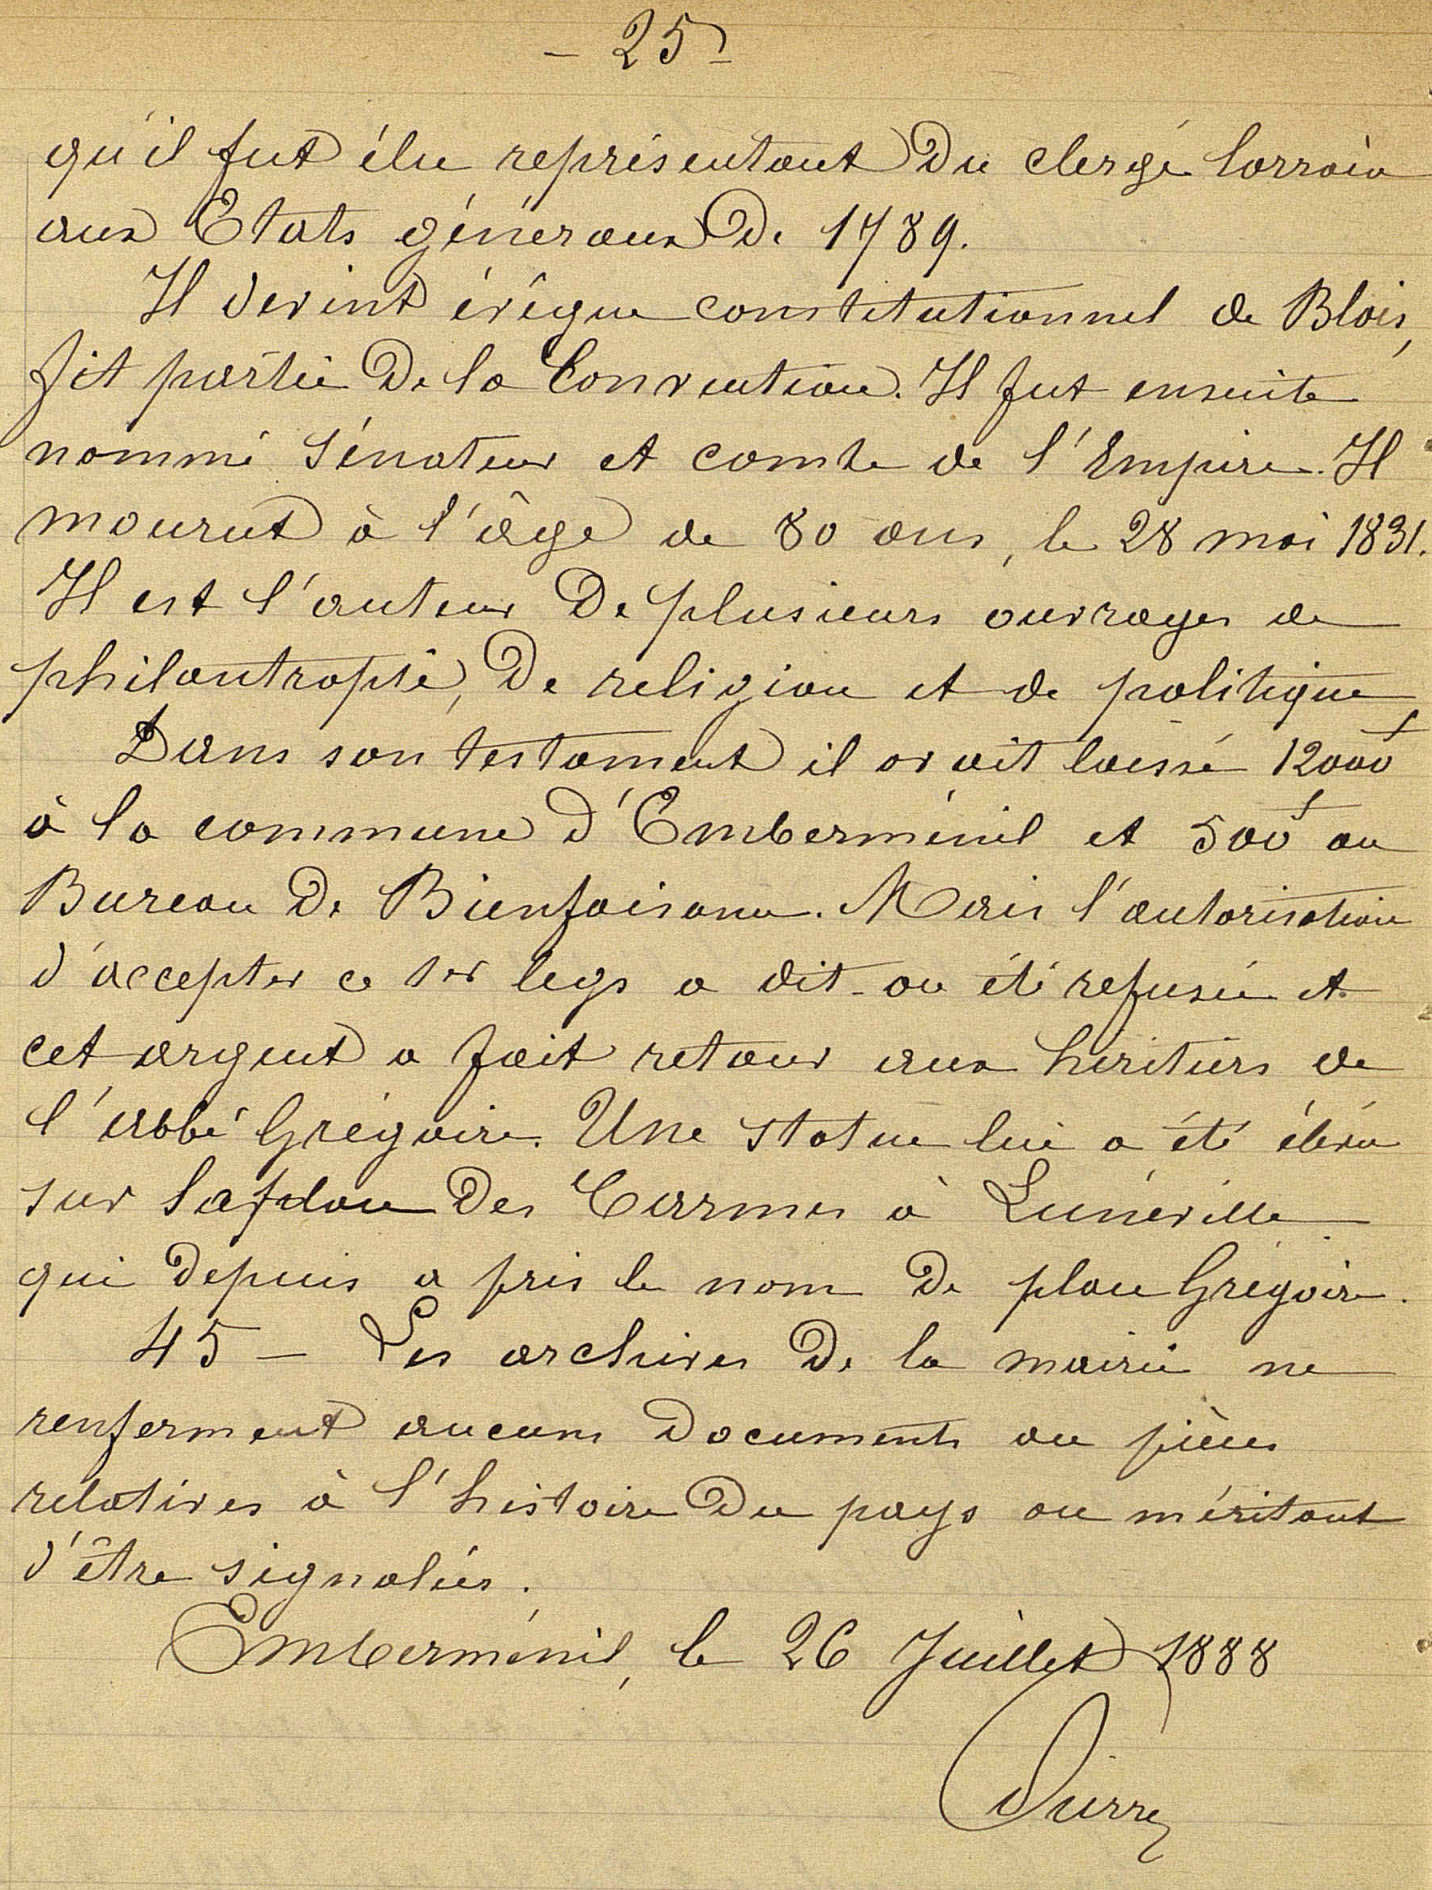 - 25 -
qu'il fut élu représentant du clergé lorrain
aux Etats généraux de 1789.
Il devint évêque constitutionnel de Blois,
fit partie de la Convention. Il fut ensuite
nommé sénateur et comte de l'Empire. Il
mourut à l'âge de 80 ans, le 28 mai 1831.
Il est l'auteur de plusieurs ouvrages de
philantropie, de religion et de politique
Dans son testament il avait laissé 12000f
à la commune d'Emberménil et 500f au
Bureau de Bienfaisance. Mais l'autorisation
d'accepter ce 1er legs a dit-on été refusée et
cet argent a fait retour aux héritiers de
l'abbé Grégoire. Une statue lui a été élevée
sur la place des Carmes à Lunéville
qui depuis a pris le nom de place Grégoire.
45 - Les archives de la mairie ne
renferment aucuns documents ou pièces
relatives à l'histoire du pays ou méritant
d'être signalées.
Emberménil, le 26 Juillet 1888